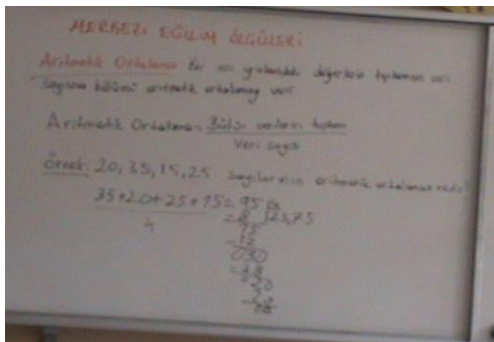 MERKEZİ EĞİLİM ÖLÇÜLERİ
Aritmetik Ortalama: Bir veri grubundaki değerlerin toplamının veri
sayısına bölümü aritmetik ortalamayı verir.
Aritmetik Ortalama = Bütün verilerin toplamı
Veri sayısı
Örnek: 20, 35, 15, 25 sayılarının aritmetik ortalaması nedir?
35+20+25+15 = 95
4
23,75
15
12
030
28
20
20
00